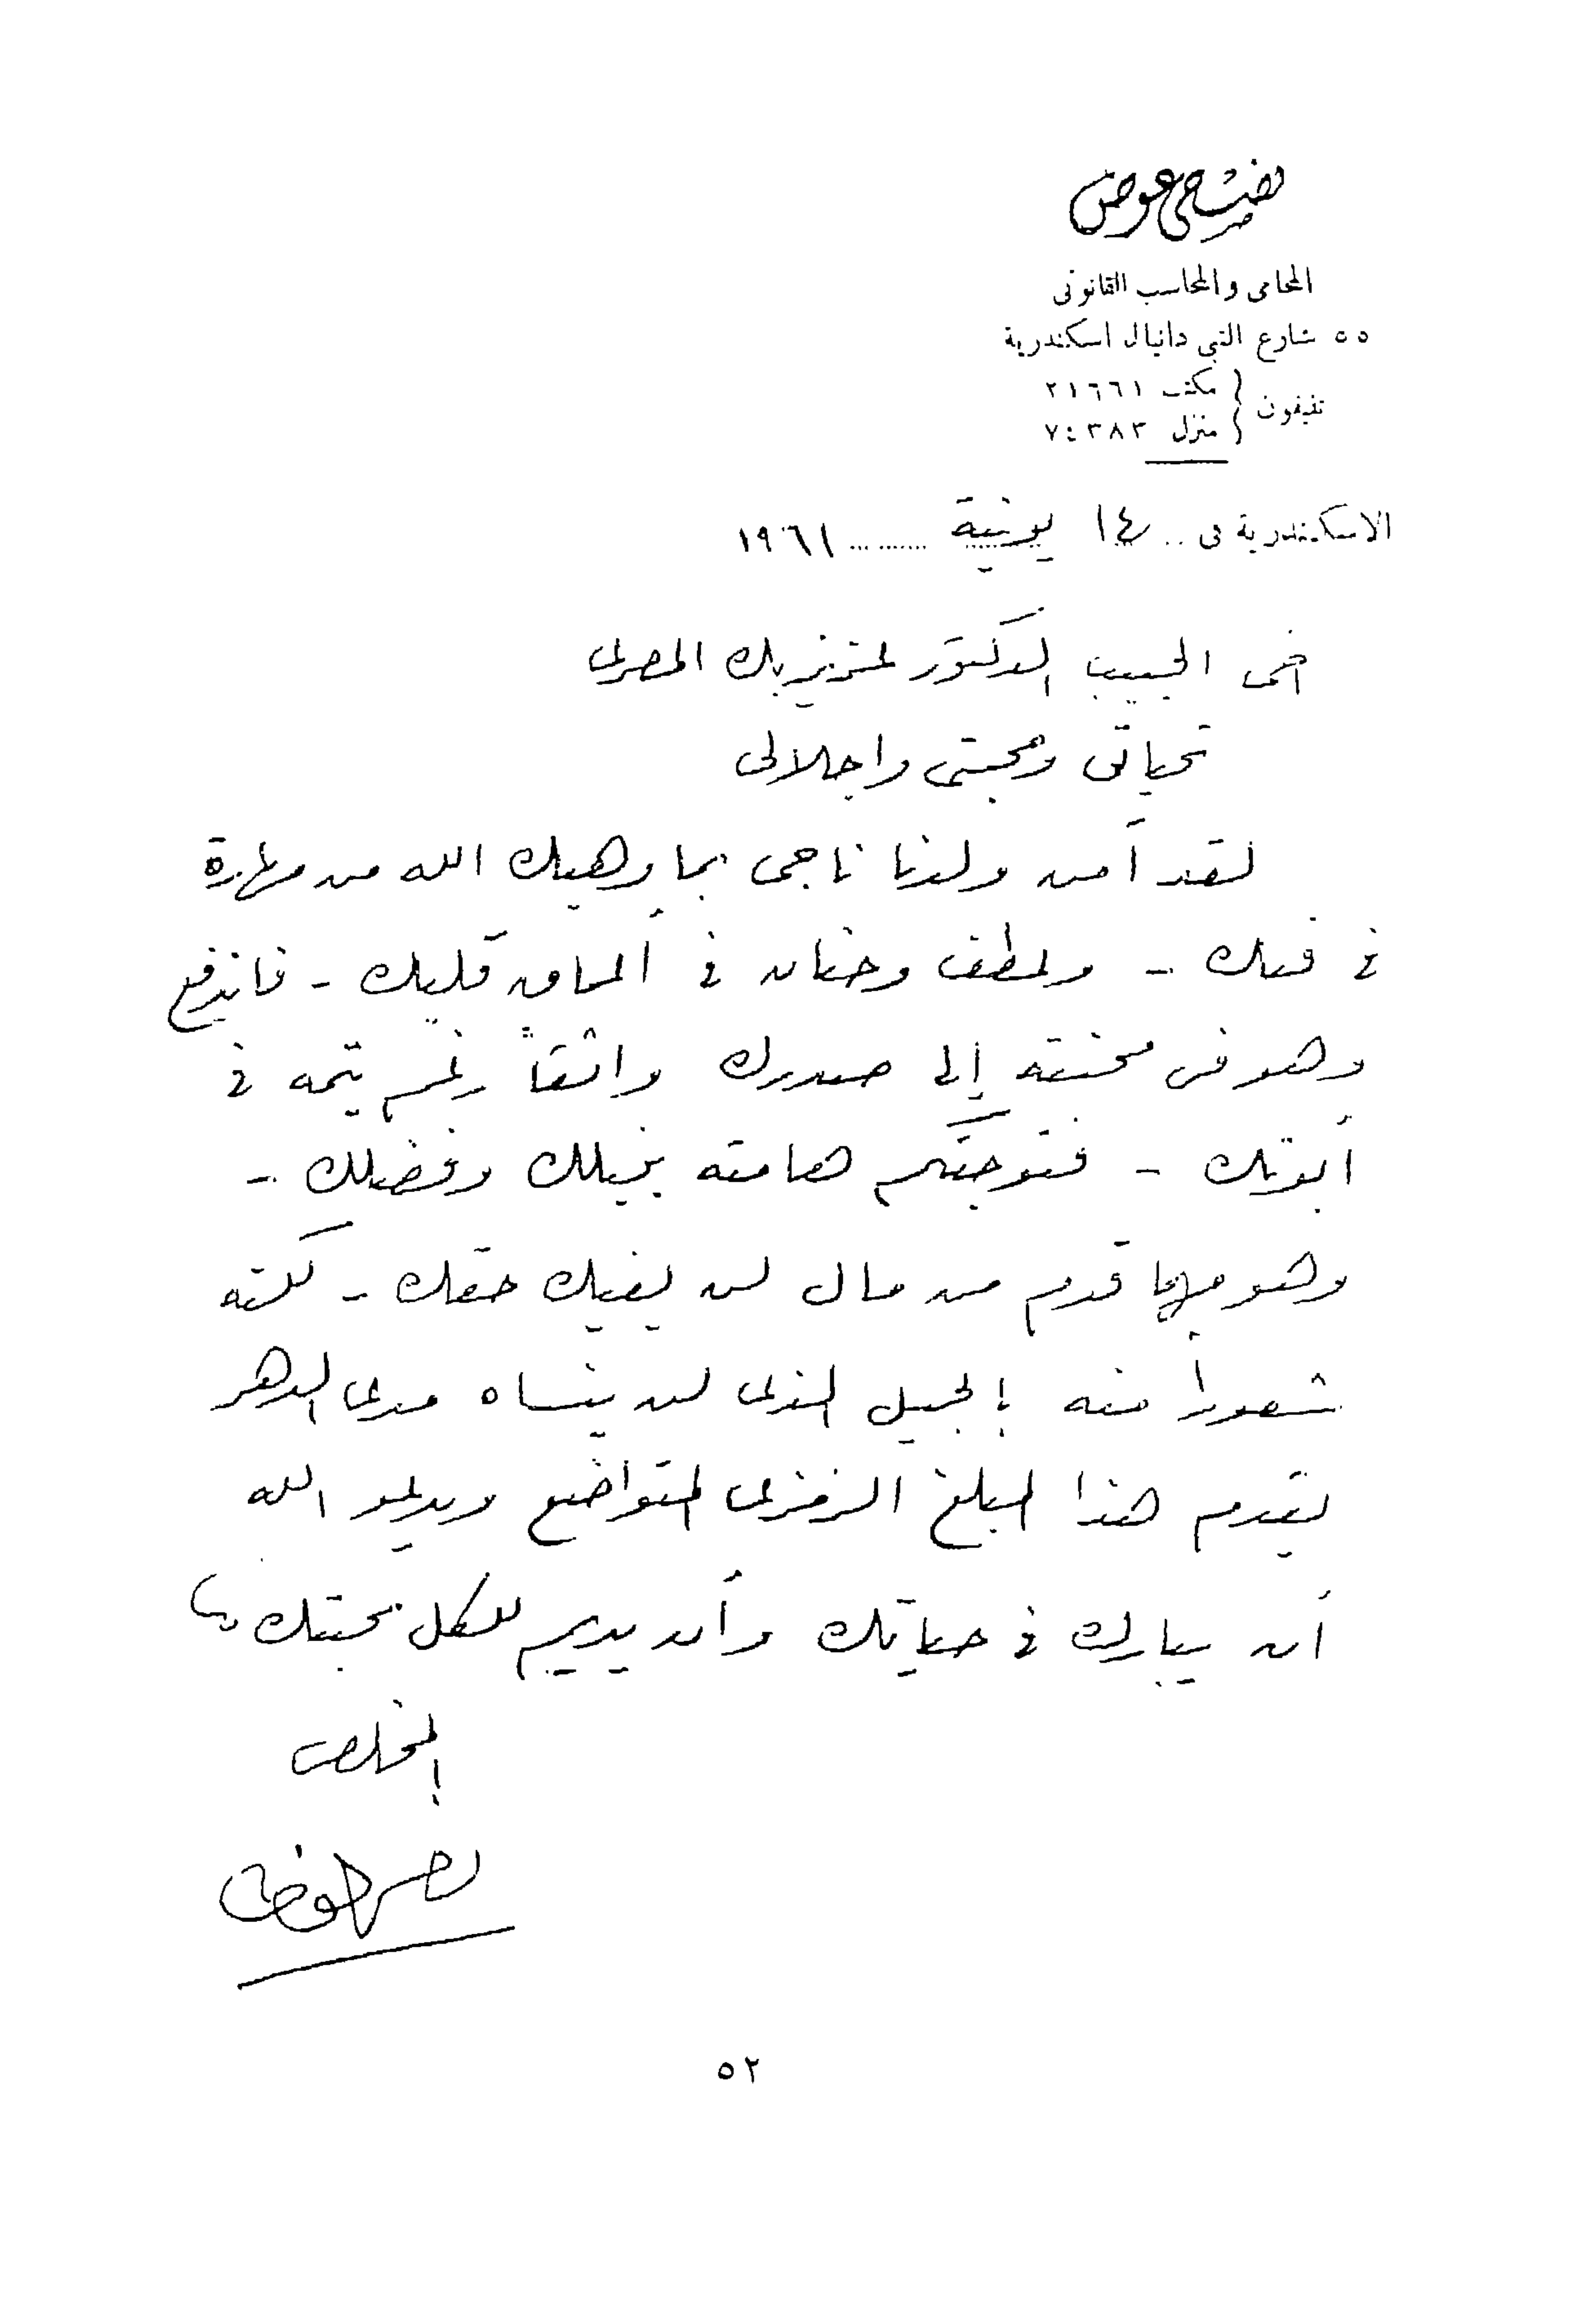 فتحى عوض
المحامى والمحاسب القانونى
٥٥ شارع النبى دانيال اسكندرية
تليفون { مكتب ٢١٦٦١
{ منزل ٧٤٣٨٣
الاسكندرية فى .. ١٤ يونية ....... ١٩٦١
أخى الحبيب الدكتور عزيز بك المصرى
تحياتى ومحبتى وإجلالى
لقد آمن ولدنا ناجى بما وهبك الله من مهارة
فى فنك - وعطف وحنان فى أعماق قلبك - فاندفع
وهو فى محنته إلى صدرك واثقاً رغم يتمه فى
أبوتك - فتوجتكم هامته بنبلك وفضلك -
وهو مهما قدم من مال لن يفيك حقك - لكنه
شعوراً منه بالجميل الذى لن ينساه مدى الدهر
يقدم هذا المبلغ الرمزى المتواضع ويدعو الله
أن يبارك فى حياتك وأن يديم للكل محبتك
المخلص
٥٢